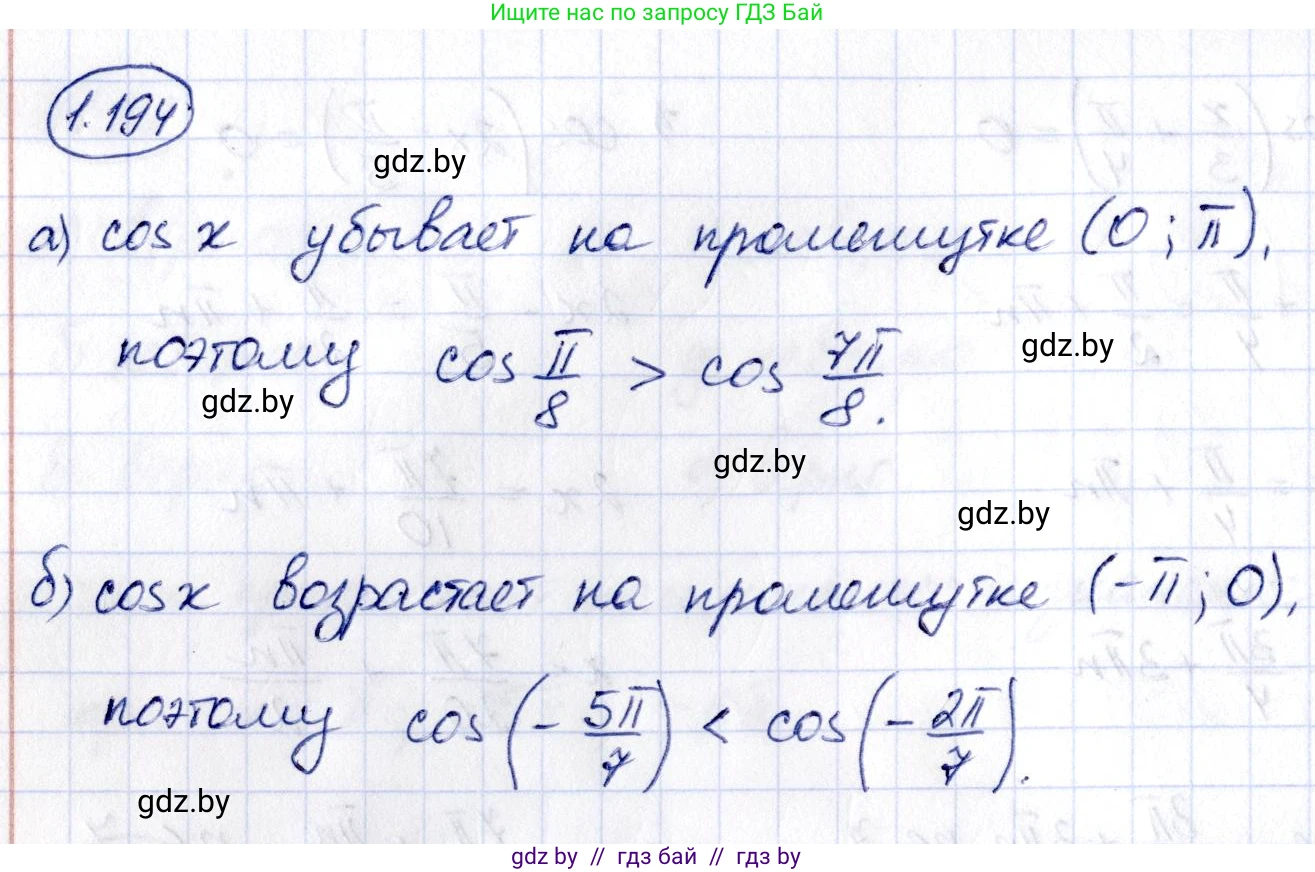 Ищите нас по запросу ГДЗ Бай
1.194
gdz.by
а) cos x убывает на промежутке (0; π),
поэтому cos π/8 > cos 7π/8.
gdz.by
gdz.by
gdz.by
gdz.by
б) cos x возрастает на промежутке (-π; 0),
поэтому cos(-5π/7) < cos(-2π/7).
gdz.by
gdz by // гдз бай // гдз by